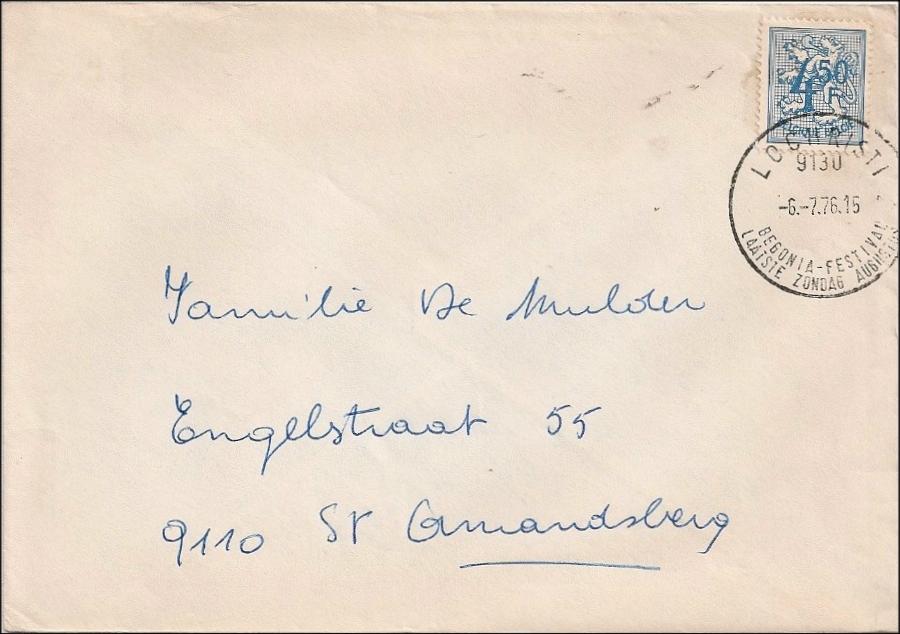 4 50
F
BELGIQUE BELGIE
LOCHRISTI
9130
-6.-7.76.15
BEGONIA-FESTIVAL
LAATSTE ZONDAG AUGUSTUS
Familie De Mulder
Engelstraat 55
9110 St Amandsberg